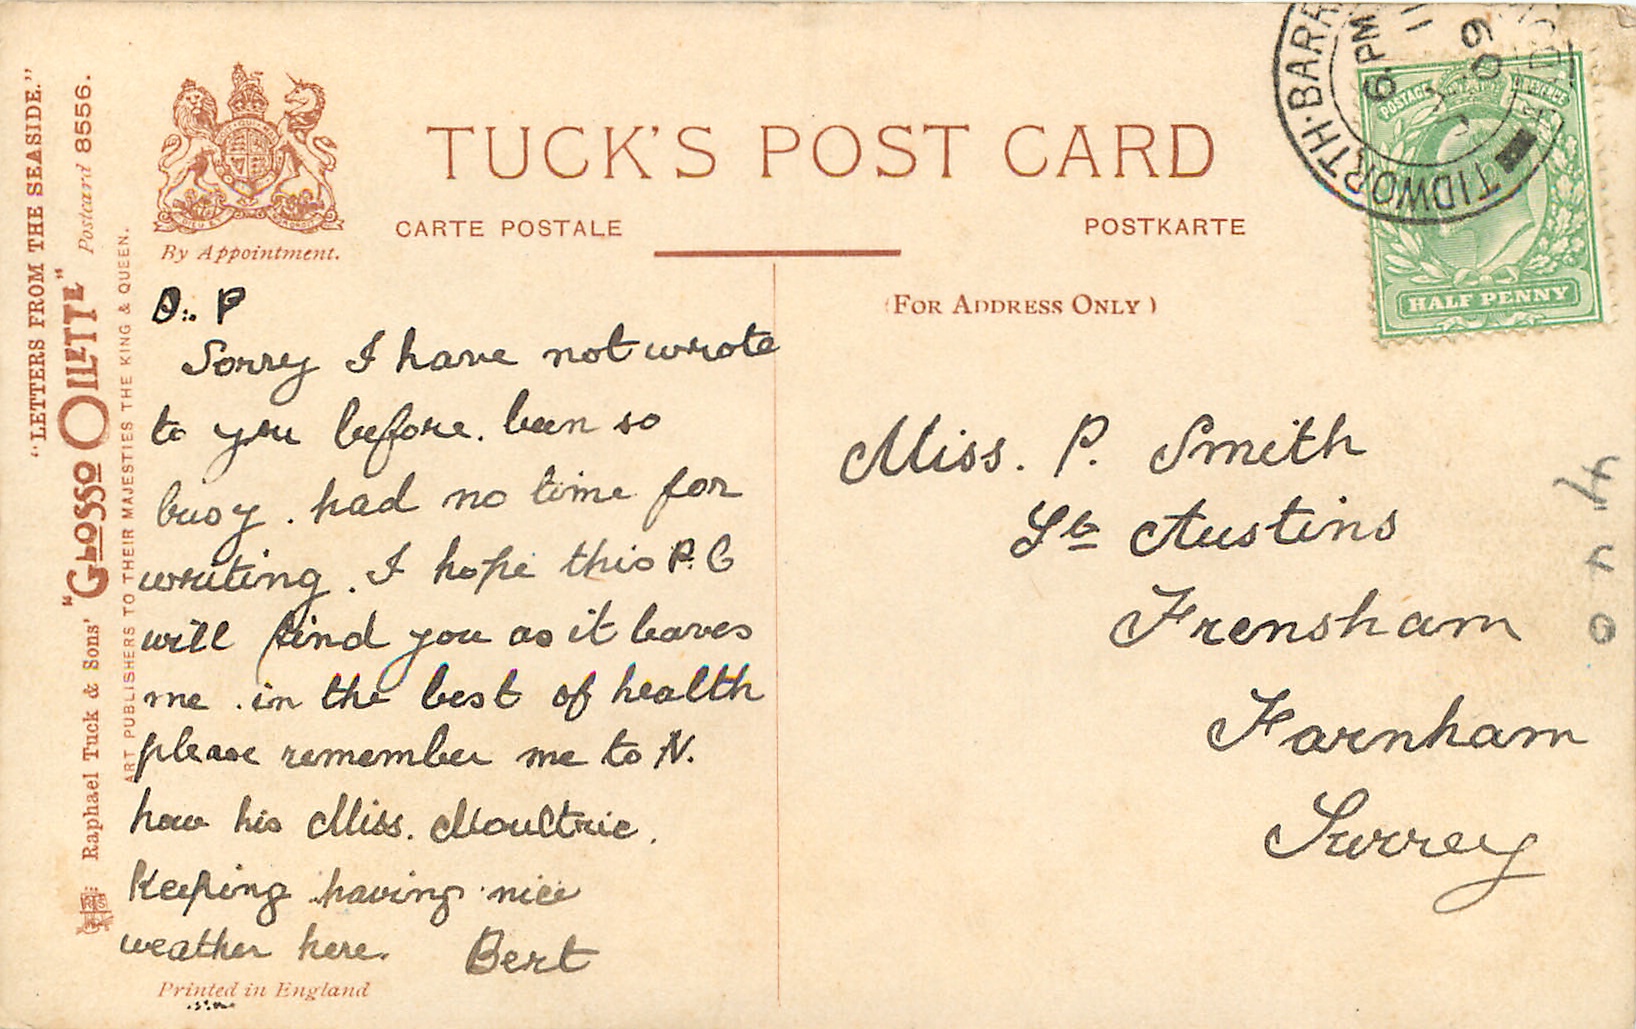 "LETTERS FROM THE SEASIDE."
Raphael Tuck & Sons' "GLOSSO OILETTE" Postcard 8556.
ART PUBLISHERS TO THEIR MAJESTIES THE KING & QUEEN.
By Appointment.
TUCK'S POST CARD
CARTE POSTALE
POSTKARTE
(FOR ADDRESS ONLY)
TIDWORTH·BARR
6 PM
11
09
POSTAGE
HALF PENNY
D.. P
Sorry I have not wrote
to you before. been so
busy. had no time for
writing. I hope this P.C
will find you as it leaves
me. in the best of health
please remember me to N.
how his Miss. Moultrie.
keeping. having nice
weather here. Bert
Printed in England
Miss. P. Smith
St Austins
Frensham
Farnham
Surrey